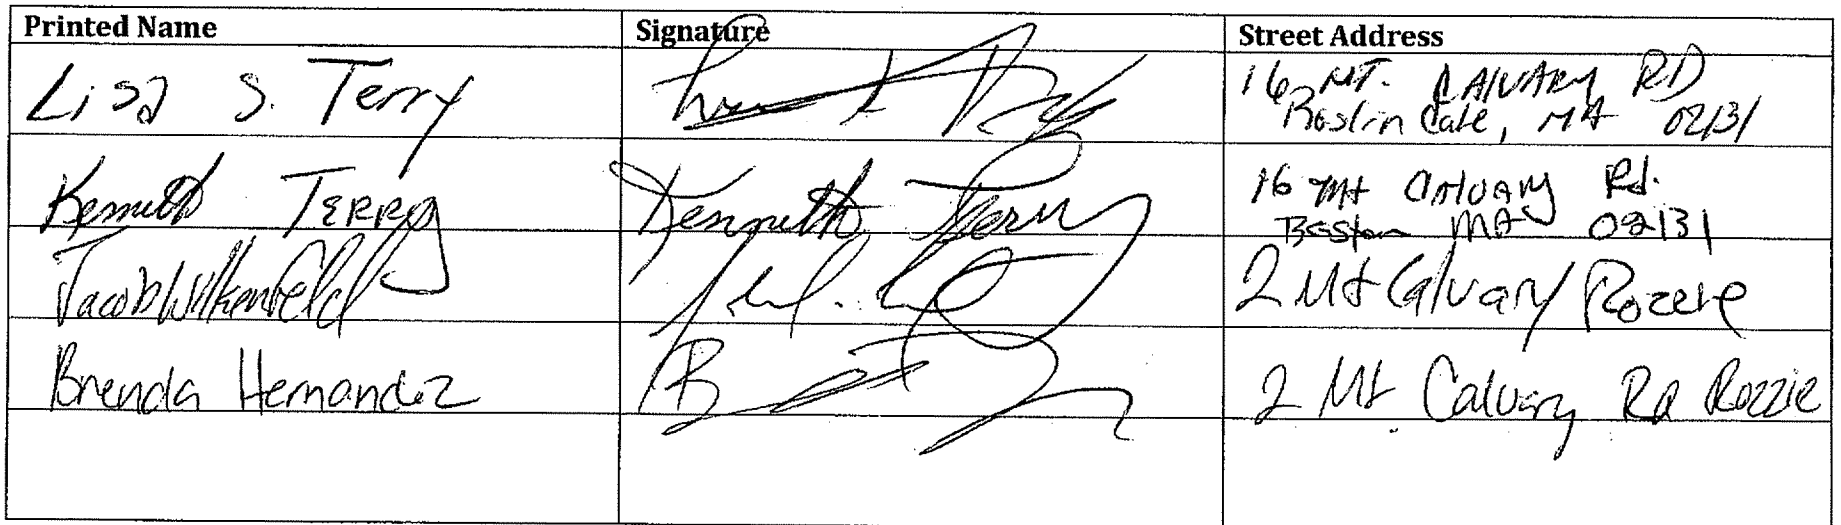 Printed Name Signature Street Address
Lisa S. Terry 16 MT. CALVARY RD
Roslindale, MA 02131
Kenneth TERRY Kenneth Terry 16 Mt CALVARY Rd.
Boston MA 02131
Jacob Wilkenfeld 2 Mt Calvary Rozzie
Brenda Hernandez 2 Mt Calvary Rd Rozzie